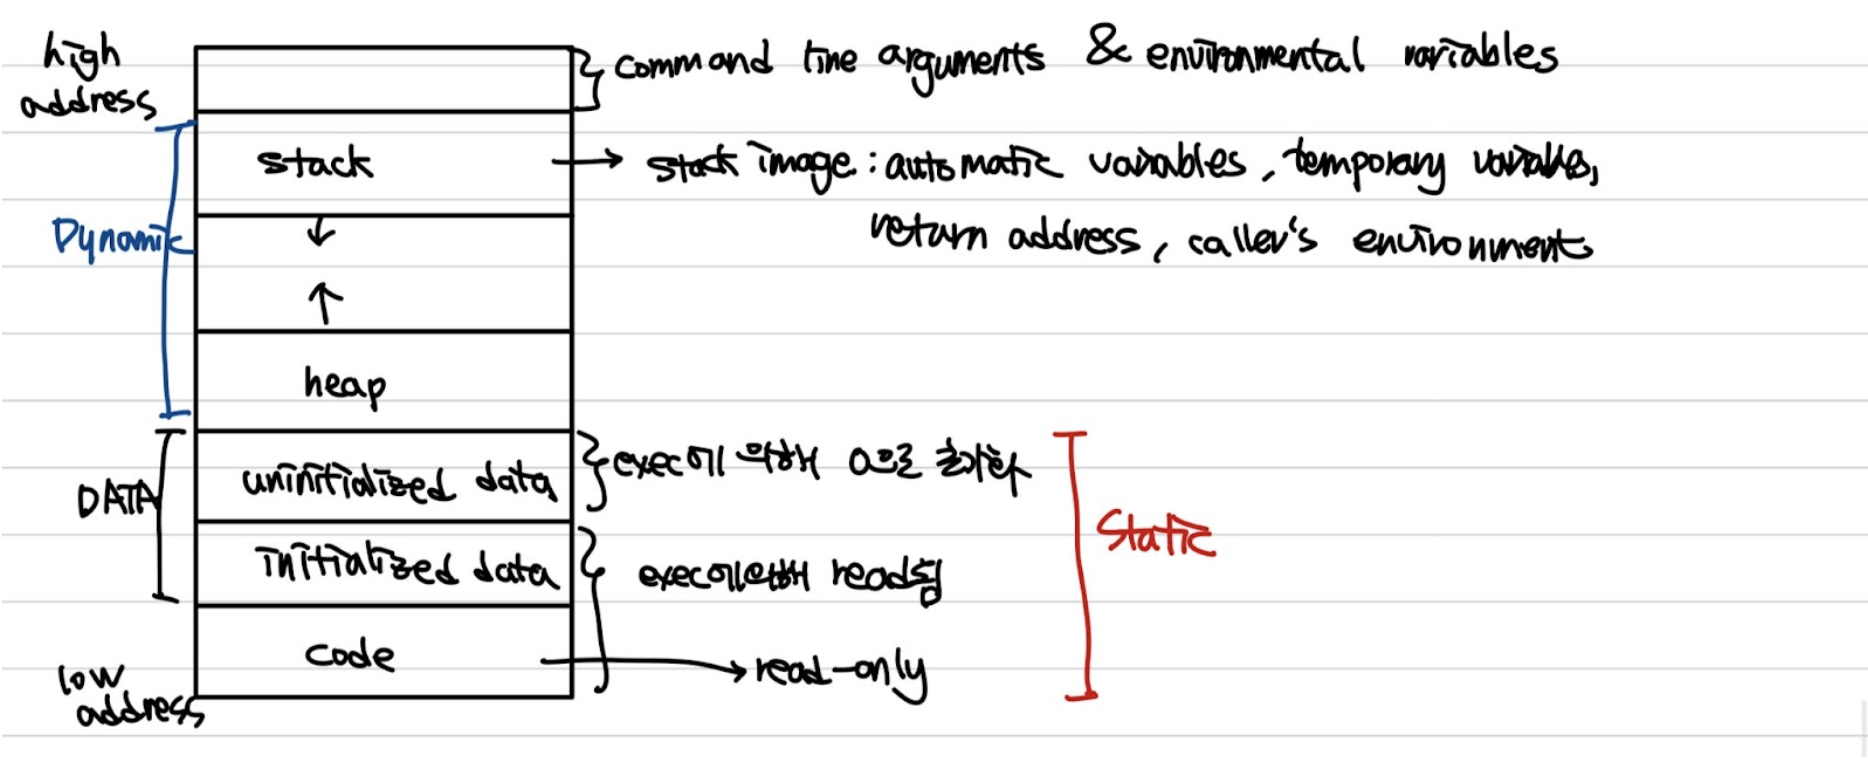 high
address
command line arguments & environmental variables
stack
stack image : automatic variables, temporary variables,
return address, caller's environment
Dynamic
↓
↑
heap
DATA
uninitialized data
exec에 의해 0으로 초기화
Static
initialized data
exec에의해 read됨
code
read-only
low
address